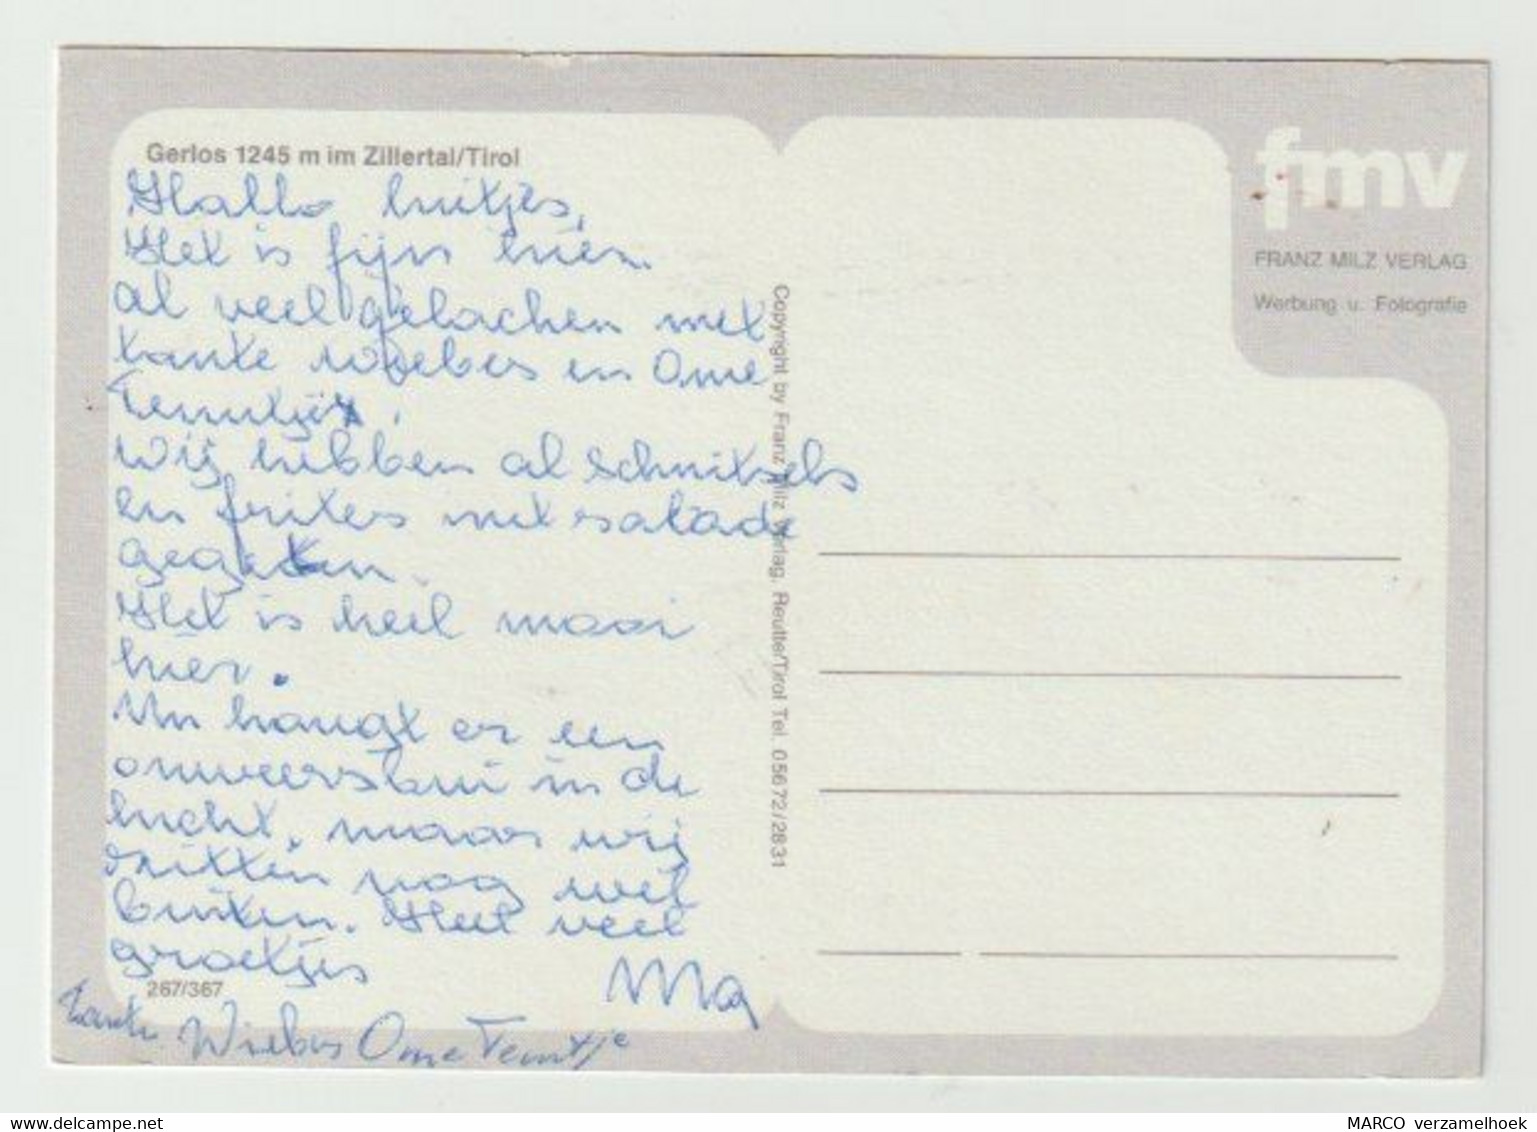 Gerlos 1245 m im Zillertal/Tirol
Hallo luitjes,
Het is fijn hier.
al veel gelachen met
tante Wiebes en Ome
Temtje.
Wij hebben al schnitzels
en frites met salade
gegeten.
Het is heel mooi
hier.
Nu hangt er een
onweersbui in de
lucht, maar wij
zitten nog wel
buiten. Heel veel
groetjes Ma
267/367
tante Wiebes Ome Temtje
Copyright by Franz Milz Verlag, Reutte/Tirol Tel. 05672/2831
fmv
FRANZ MILZ VERLAG
Werbung u. Fotografie
MARCO verzamelhoek
Delcampe.net